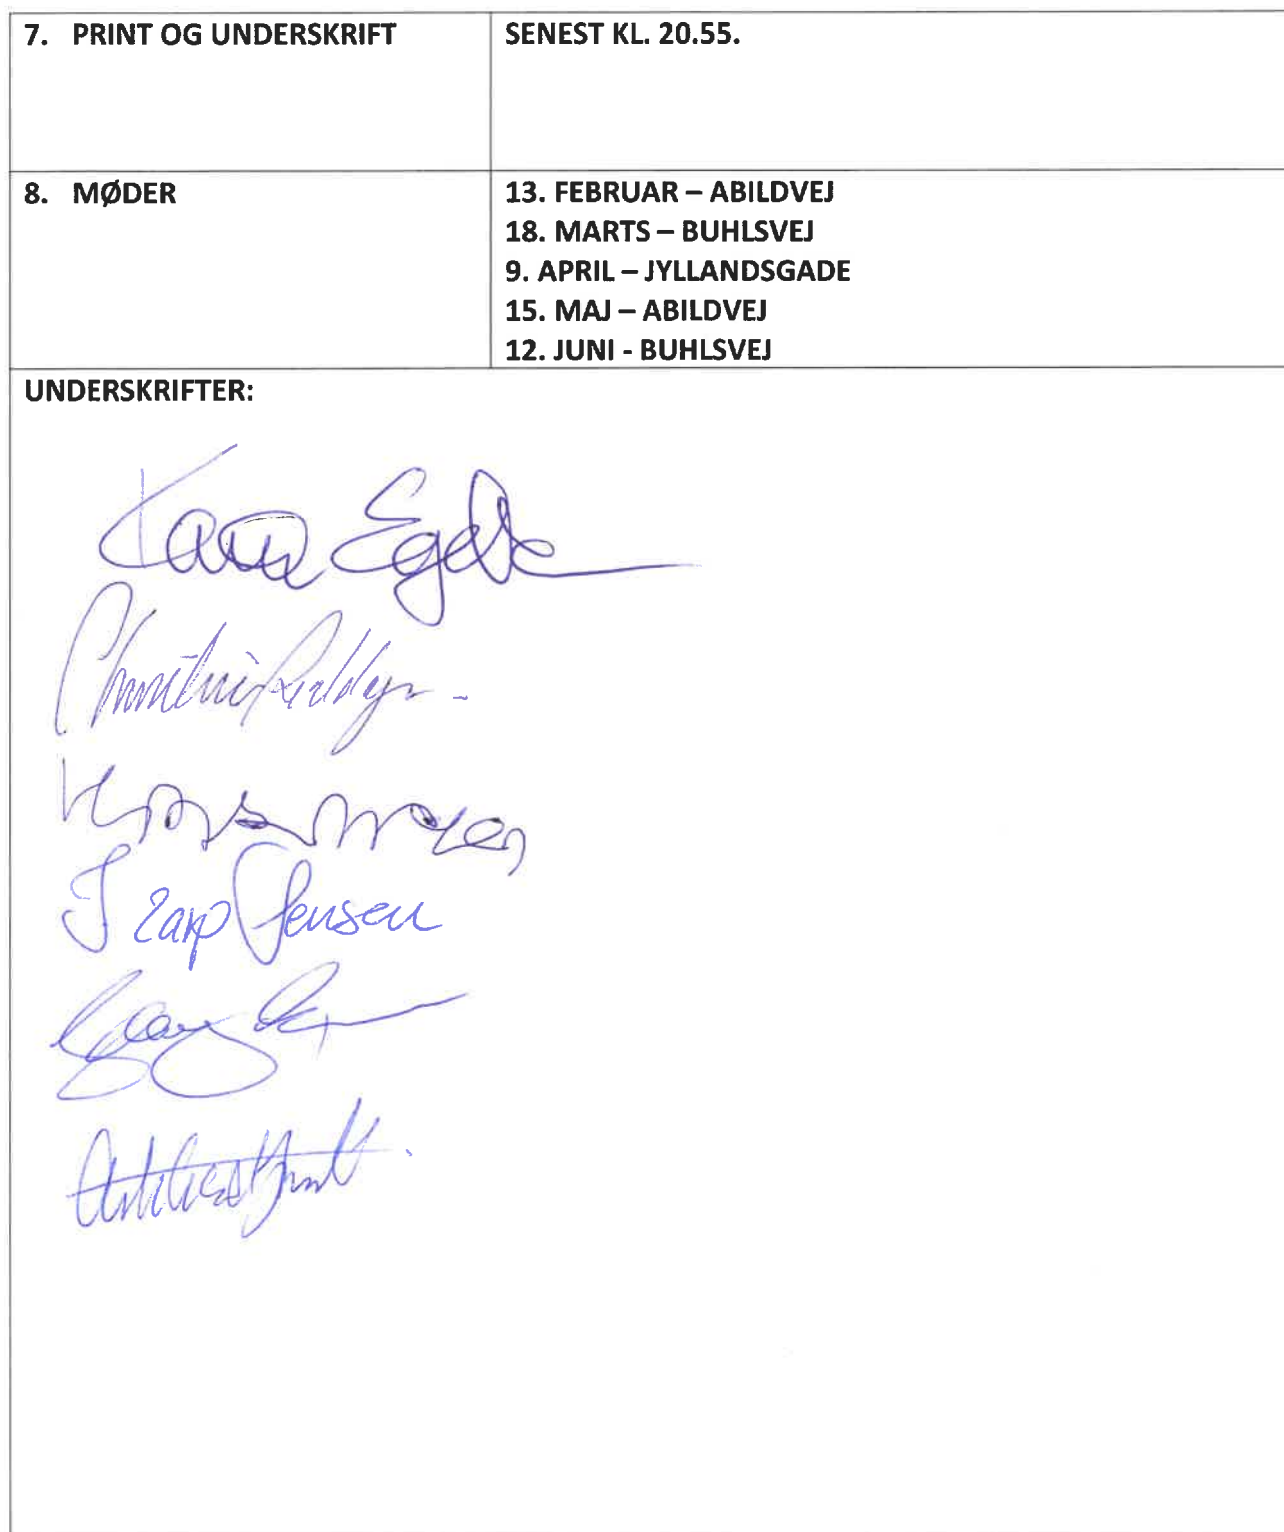 7. PRINT OG UNDERSKRIFT
SENEST KL. 20.55.
8. MØDER
13. FEBRUAR – ABILDVEJ
18. MARTS – BUHLSVEJ
9. APRIL – JYLLANDSGADE
15. MAJ – ABILDVEJ
12. JUNI - BUHLSVEJ
UNDERSKRIFTER:
Jensen